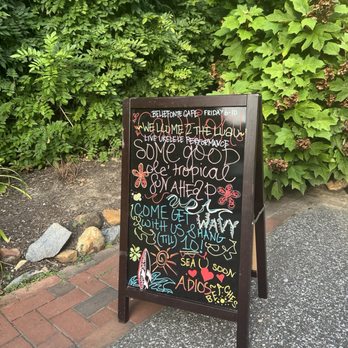 BELLEFONTE CAFE FRIDAY 6-10
WELCOME 2 THE LUAU
LIVE UKELELE PERFORMANCE
SOME GOOD
ole' tropical
FUN AHEAD
COME GET WAVY
WITH US & HANG
(TILL) 10!
SEA U SOON
ADIOS
BEACHES